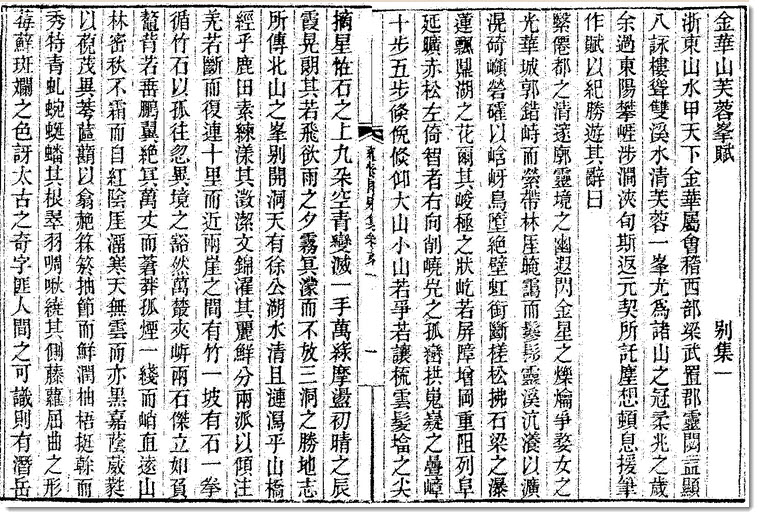 金華山芙蓉峯賦 别集一
浙東山水甲天下金華屬會稽西部梁武置郡靈閟益顯
八詠樓聳雙溪水清芙蓉一峯尤為諸山之冠柔兆之歲
余過東陽攀崕涉澗浹旬斯返元契所託塵想頓息援筆
作賦以紀勝遊其辭曰
繄僊都之清邃廓靈境之幽遐閃金星之爍爚爭婺女之
光華城郭錯峙而縈帶林厓靄而鬖髿靈溪沆瀁以瀇
滉碕礭以㟏岈鳥墮絶壁虹銜斷槎松拂石梁之瀑
蓮飄鼎湖之花爾其峻極之狀屹若屏障增岡重阻列阜
延曠赤松左倚智者右向削嶢屼之孤巒拱嵬嶷之疊嶂
十步五步倏俛倏仰大山小山若爭若讓梳雲髮墖之尖
一
摘星恠石之上九朶空青變滅一手萬綠摩盪初晴之辰
霞晃朗其若飛欲雨之夕霧冥濛而不放三洞之勝地志
所傳北山之峯别開洞天有徐公湖水清且漣瀉平山橋
經乎鹿田素練漾其澂潔文錦濯其麗鮮分兩派以傾注
羌若斷而復連十里而近兩崖之間有竹一坡有石一拳
循竹石以孤往忽異境之豁然萬蕞夾峙兩石傑立如負
鼇背若番鵬翼絶冥萬丈而蒼莽孤煙一綫而峭直遠山
林密秋不霜而自紅陰厓溜寒天無雲而亦黑嘉蔭葳蕤
以薿茂異萼藟以翕赩篠簜抽節而鮮潤柚梧挺榦而
秀特青虬蜿蜒蟠其根翠羽啁啾繞其側藤蘿屈曲之形
莓蘚斑斕之色訝太古之奇字匪人間之可識則有潛岳